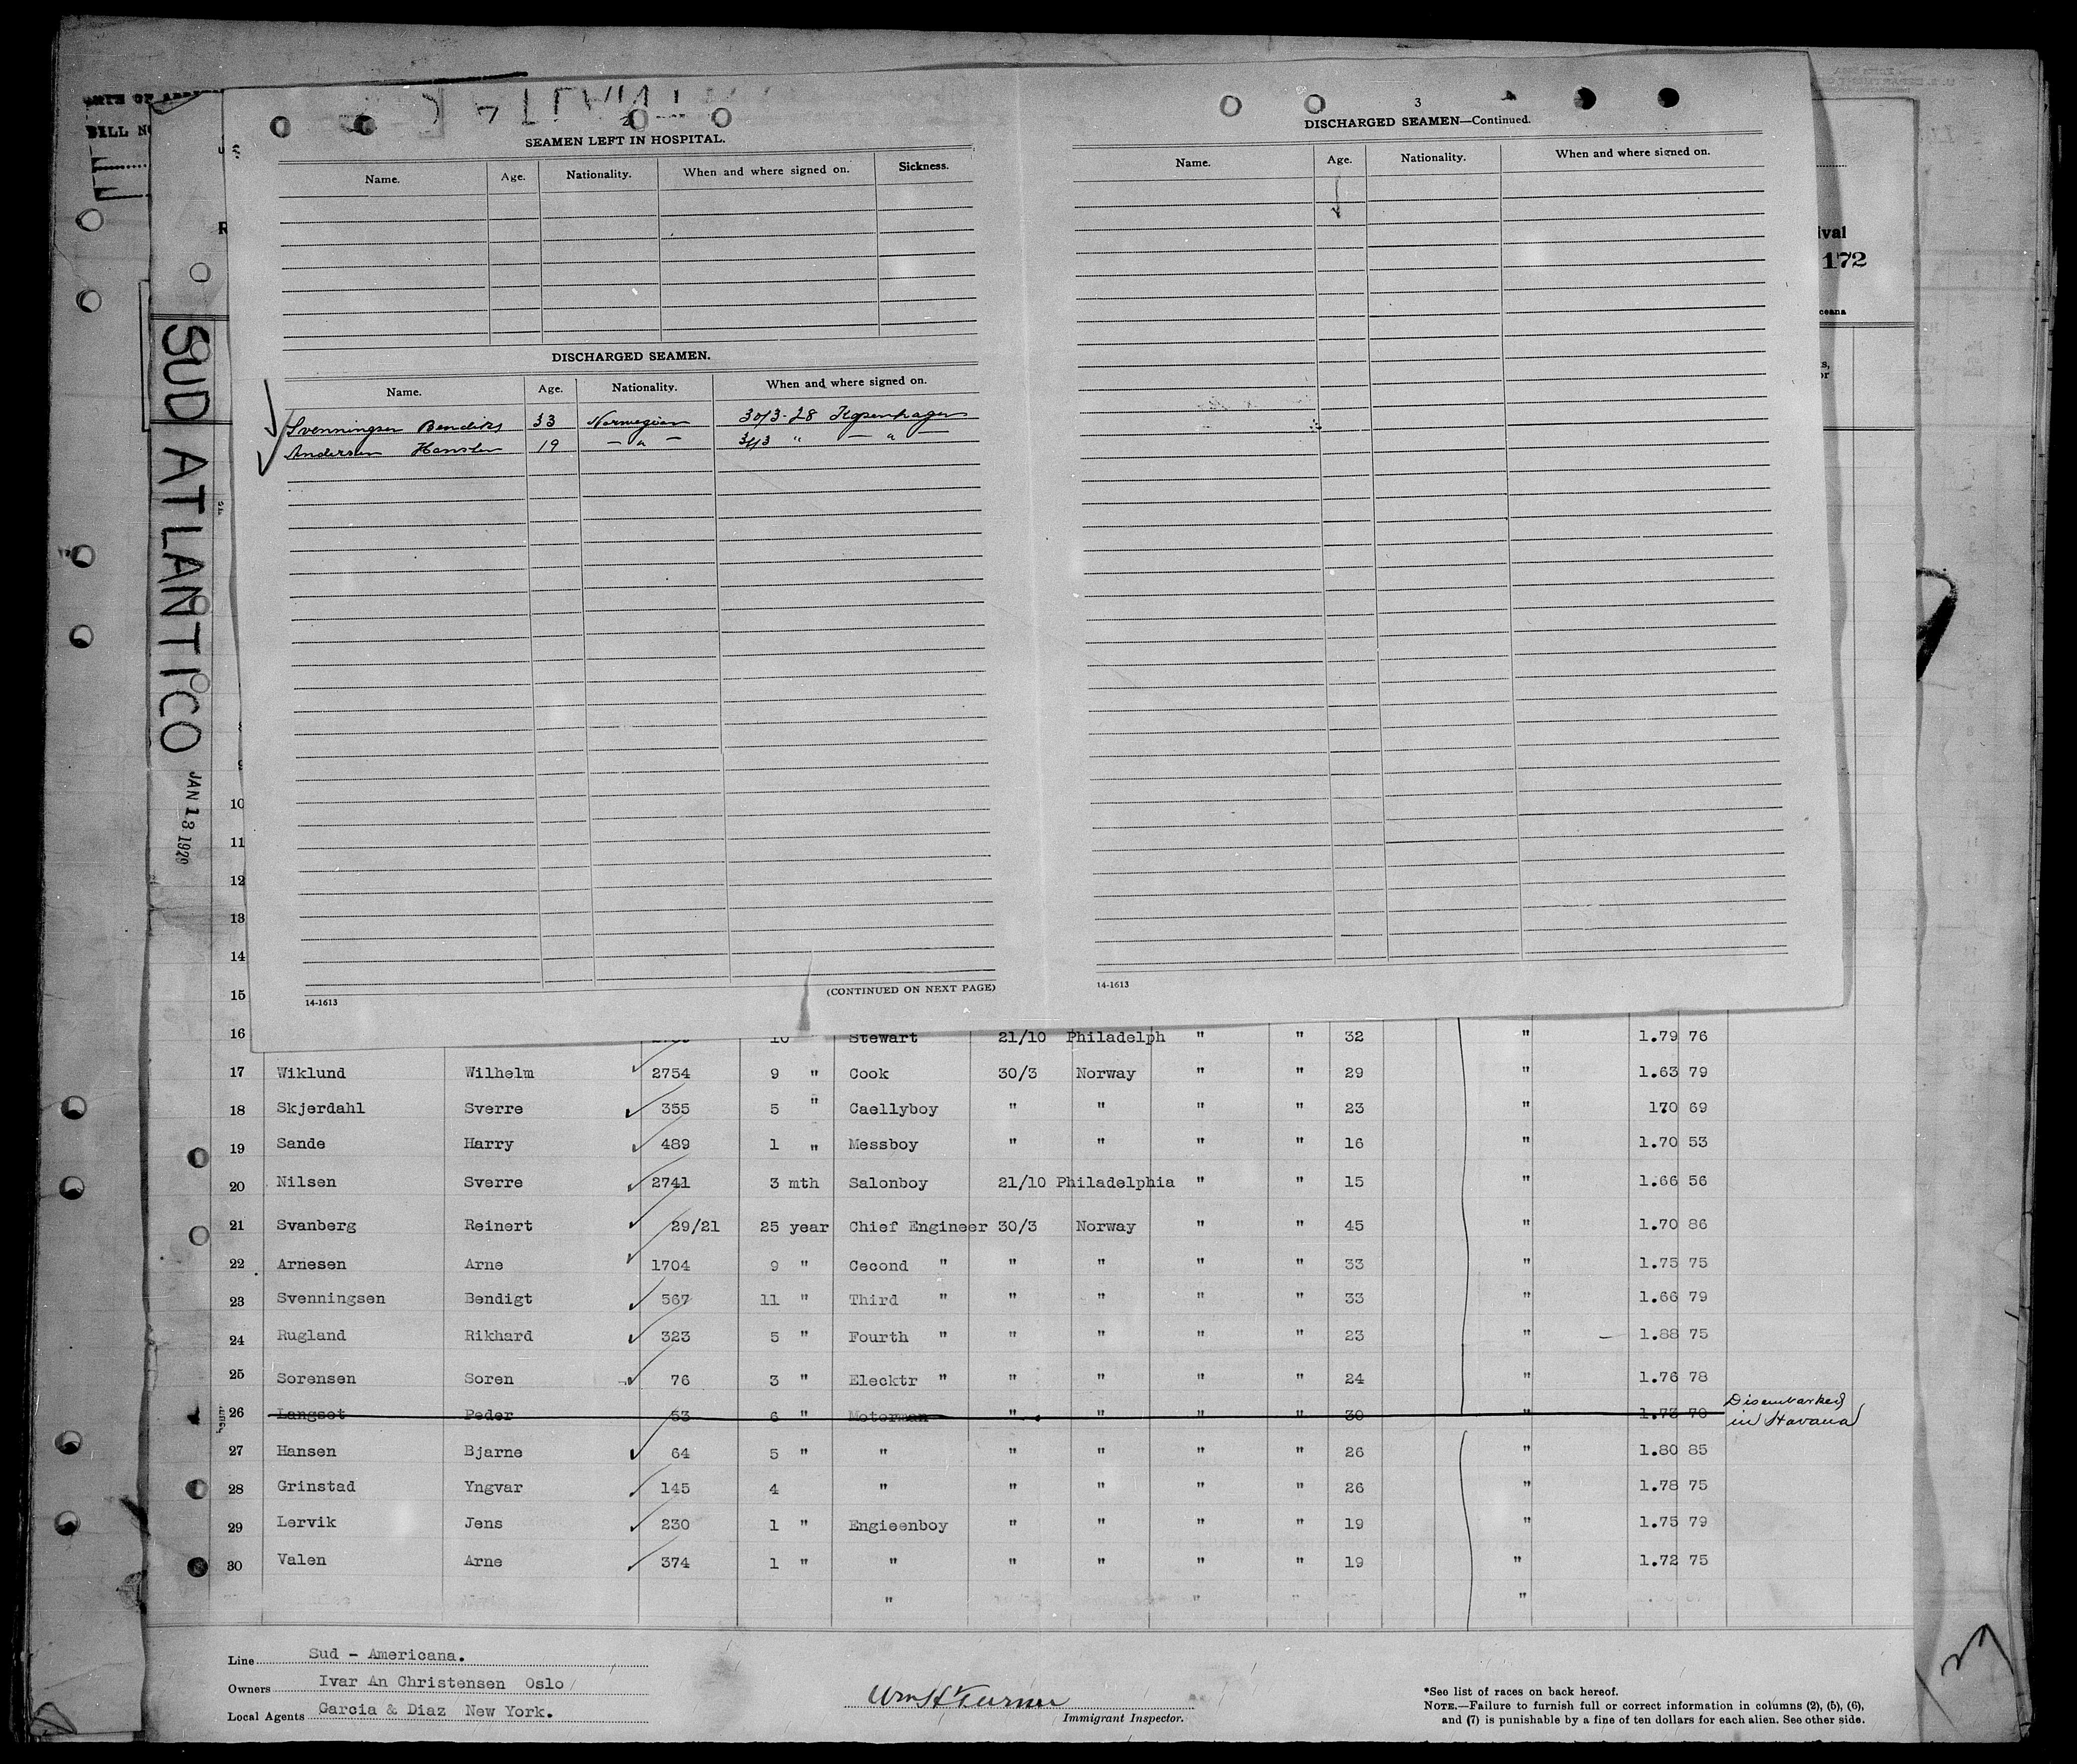 BILL NO
SUD ATLANTICO
JAN 13 1929
2
SEAMEN LEFT IN HOSPITAL.
Name. Age. Nationality. When and where signed on. Sickness.
DISCHARGED SEAMEN.
Name. Age. Nationality. When and where signed on.
Svenningsen Bendiks 33 Norwegian 30/3-28 Kopenhagen
Andersen 19 — " — " — " —
(CONTINUED ON NEXT PAGE)
14-1613
3
DISCHARGED SEAMEN—Continued.
Name. Age. Nationality. When and where signed on.
14-1613
ival
172
ceana
10
11
12
13
14
15
16 10 Stewart 21/10 Philadelph " " 32 " 1.79 76
17 Wiklund Wilhelm 2754 9 " Cook 30/3 Norway " " 29 " 1.63 79
18 Skjerdahl Sverre 355 5 " Caellyboy " " " " 23 " 170 69
19 Sande Harry 489 1 " Messboy " " " " 16 " 1.70 53
20 Nilsen Sverre 2741 3 mth Salonboy 21/10 Philadelphia " " 15 " 1.66 56
21 Svanberg Reinert 29/21 25 year Chief Engineer 30/3 Norway " " 45 " 1.70 86
22 Arnesen Arne 1704 9 " Cecond " " " " " 33 " 1.75 75
23 Svenningsen Bendigt 567 11 " Third " " " " " 33 " 1.66 79
24 Rugland Rikhard 323 5 " Fourth " " " " " 23 " 1.88 75
25 Sorensen Soren 76 3 " Elecktr " " " " " 24 " 1.76 78
26 Langset Peder 53 6 " Motorman " " " " 30 " 1.73 70 Disembarked
in Havana
27 Hansen Bjarne 64 5 " " " " " " 26 " 1.80 85
28 Grinstad Yngvar 145 4 " " " " " 26 " 1.78 75
29 Lervik Jens 230 1 " Engieenboy " " " " 19 " 1.75 79
30 Valen Arne 374 1 " " " " " " 19 " 1.72 75
" "
Line Sud - Americana.
Owners Ivar An Christensen Oslo
Local Agents Garcia & Diaz New York.
Wm H Turner
Immigrant Inspector.
*See list of races on back hereof.
NOTE.—Failure to furnish full or correct information in columns (2), (5), (6),
and (7) is punishable by a fine of ten dollars for each alien. See other side.